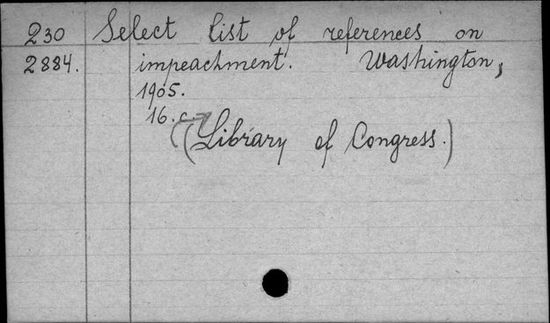 230 Select list of references on
2884. impeachment. Washington,
1905.
16. c.
(Library of Congress.)